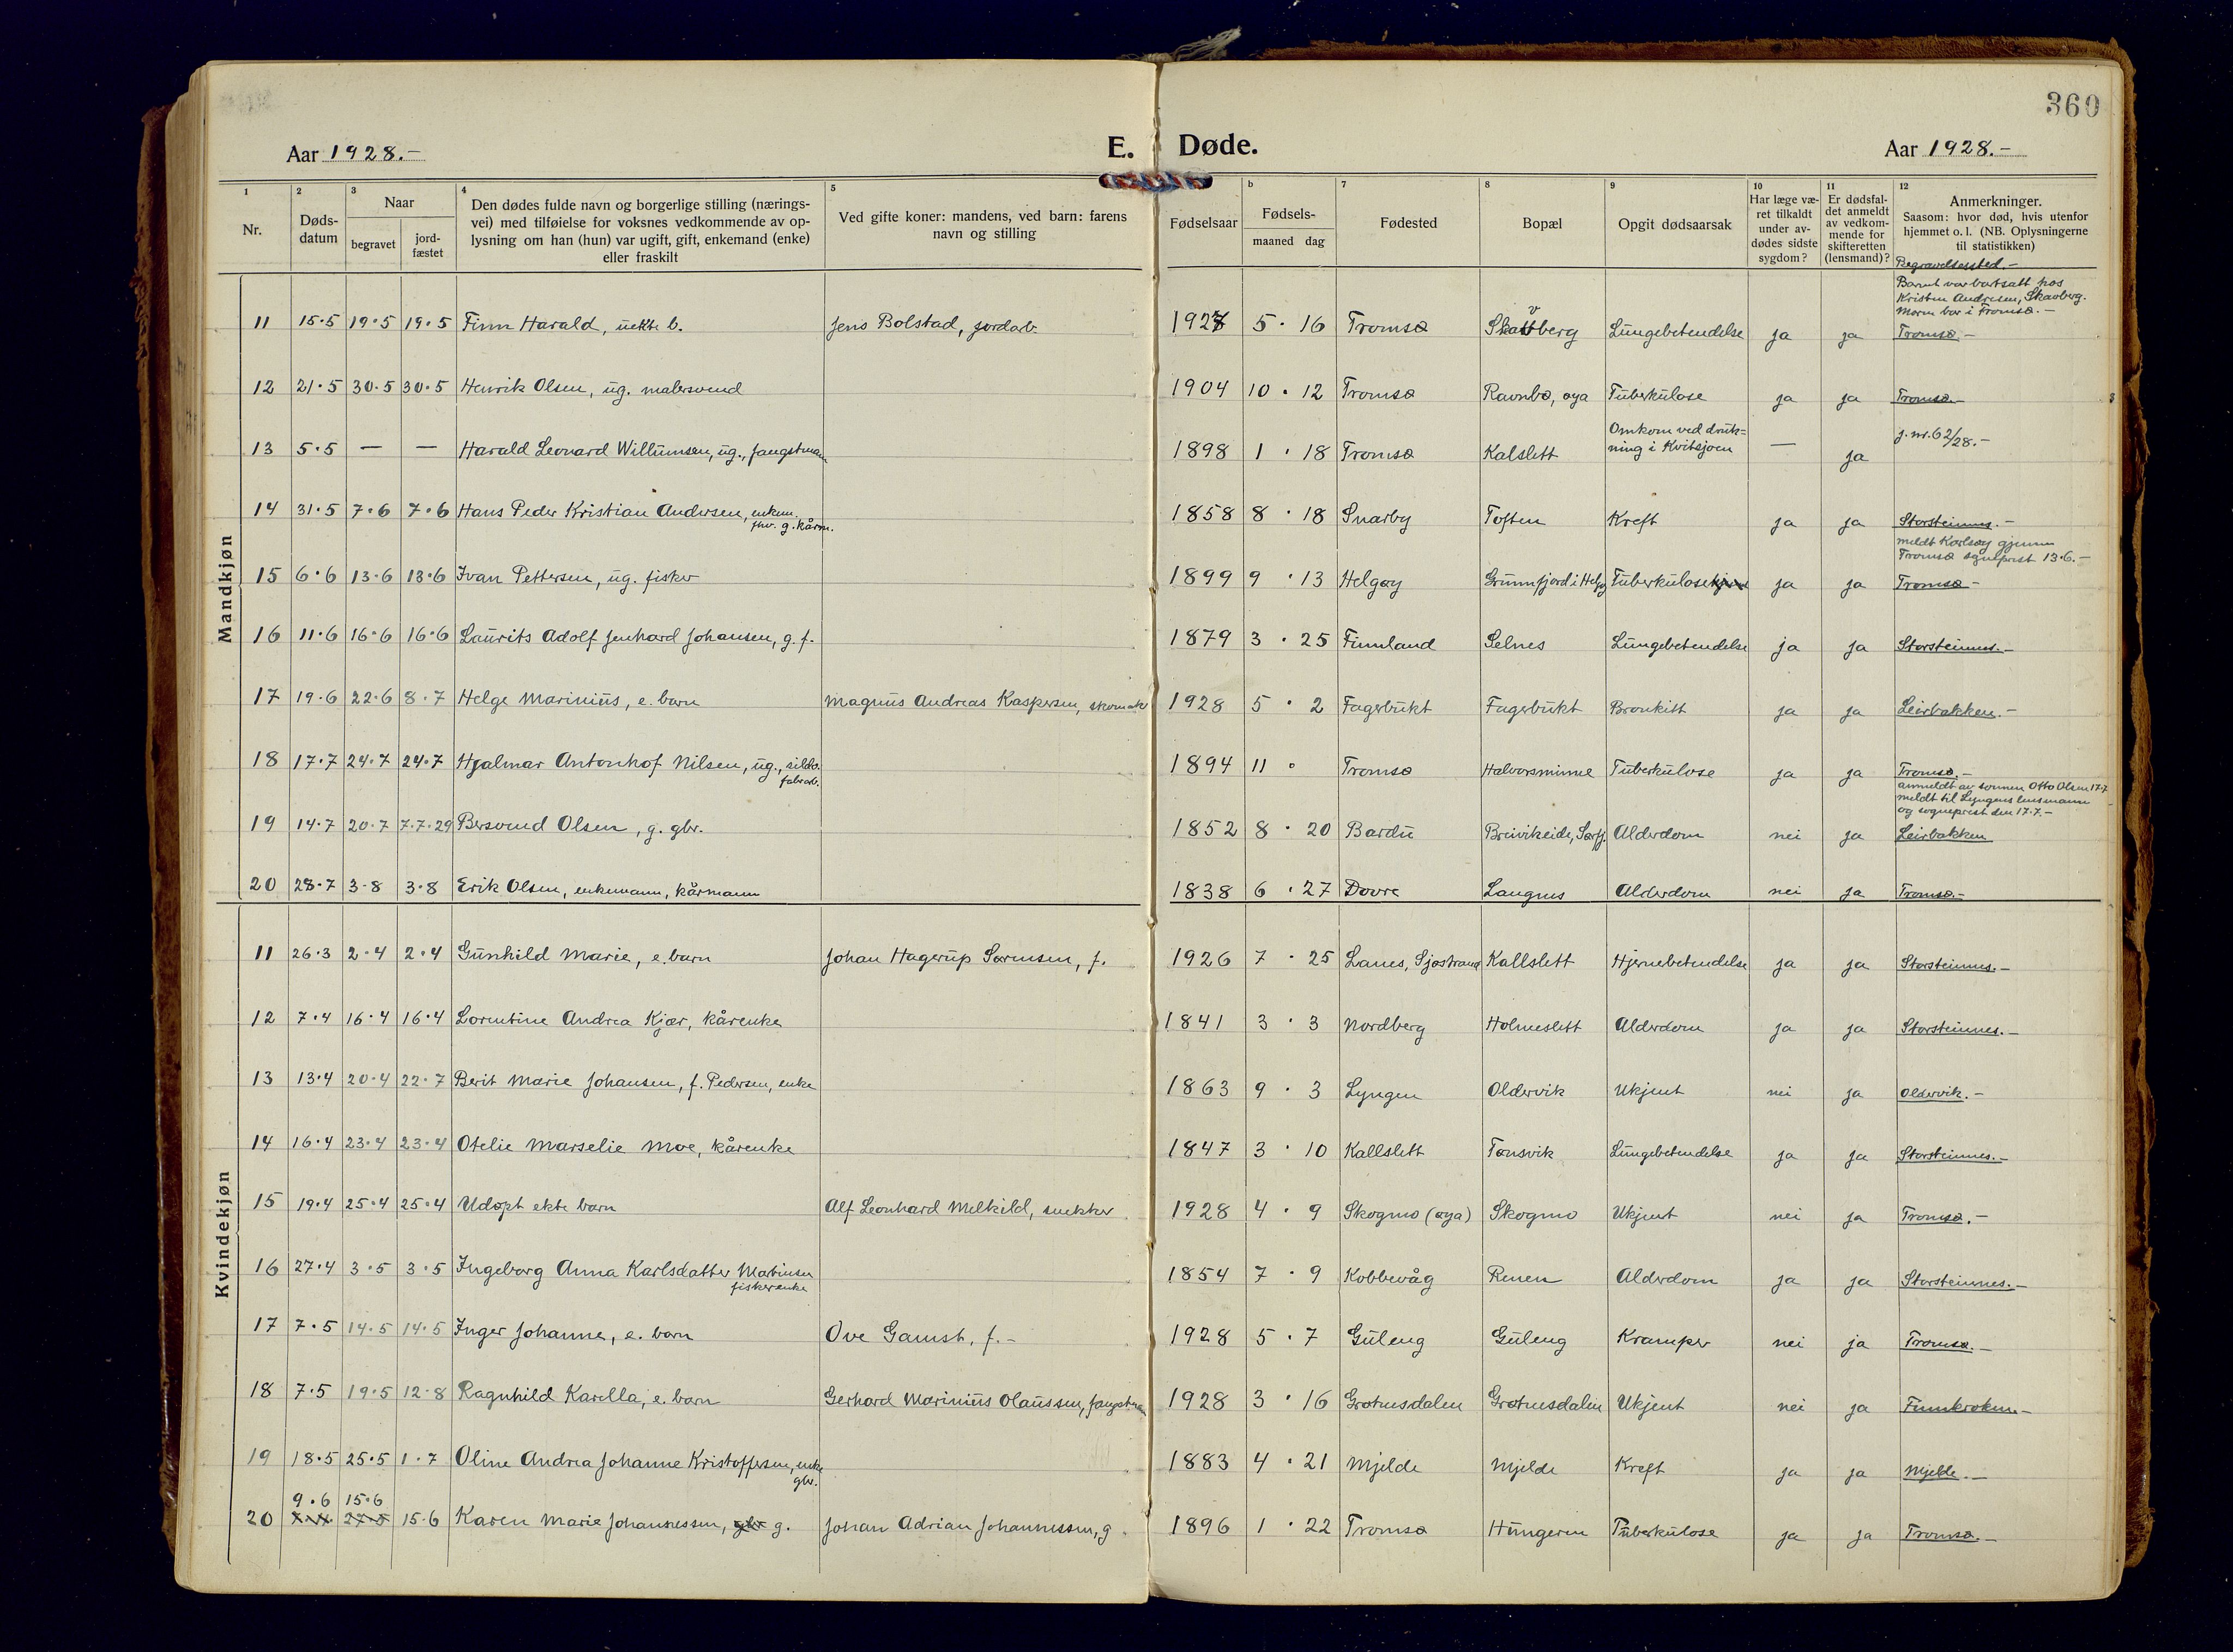 360
Aar 1928.-
E. Døde.
Aar 1928.-
1 2 3 4 5 b 7 8 9 10 11 12
Nr.
Døds-
datum
Naar
begravet
jord-
fæstet
Den dødes fulde navn og borgerlige stilling (nærings-
vei) med tilføielse for voksnes vedkommende av op-
lysning om han (hun) var ugift, gift, enkemand (enke)
eller fraskilt
Ved gifte koner: mandens, ved barn: farens
navn og stilling
Fødselsaar
Fødsels-
maaned dag
Fødested
Bopæl
Opgit dødsaarsak
Har læge væ-
ret tilkaldt
under av-
dødes sidste
sygdom?
Er dødsfal-
det anmeldt
av vedkom-
mende for
skifteretten
(lensmand)?
Anmerkninger.
Saasom: hvor død, hvis utenfor
hjemmet o. l. (NB. Oplysningerne
til statistikken)
Begravelsessted.-
Mandkjøn
Barnet var bortsatt hos
Kristen Andresen, Skavberg.
Moren bor i Tromsø.-
11 15.5 19.5 19.5 Finn Harald, uekte b. Jens Bolstad, jordarb. 1927 5 . 16 Tromsø Skavberg Lungebetendelse ja ja Tromsø-
12 21.5 30.5 30.5 Henrik Olsen, ug. malersvend 1904 10 . 12 Tromsø Ravnbø, øya Tuberkulose ja ja Tromsø.-
13 5.5 — — Harald Leonard Willumsen, ug., fangstmann 1898 1 . 18 Tromsø Kalslett Omkom ved druk=
ning i Kvitsjøen — ja j.nr. 62/28.-
14 31.5 7.6 7.6 Hans Peder Kristian Andersen, enkem.
fhv. g. kårm. 1858 8 . 18 Snarby Toften Kreft ja ja Storsteinnes.-
meldt Karlsøy gjennem
Tromsø sogneprest 13.6.-
15 6.6 13.6 13.6 Ivan Pettersen, ug. fisker 1899 9 . 13 Helgøy Grunnfjord i Helgøy Tuberkulose ja ja Tromsø-
16 11.6 16.6 16.6 Laurits Adolf Jenhard Johansen, g. f. 1879 3 . 25 Finnland Selnes Lungebetendelse ja ja Storsteinnes.-
17 19.6 22.6 8.7 Helge Marinius, e. barn Magnus Andreas Kaspersen, skomaker 1928 5 . 2 Fagerbukt Fagerbukt Bronkitt ja ja Leirbakken.-
18 17.7 24.7 24.7 Hjalmar Antonhof Nilsen, ug., silde
fabrarb. 1894 11 . Tromsø Halvorsminne Tuberkulose ja ja Tromsø.-
anmeldt av sønnen Otto Olsen 17.7
meldt til Lyngens lensmann
og sogneprest den 17.7.-
19 14.7 20.7 7.7.29 Bersvend Olsen, g. gbr. 1852 8 . 20 Bardu Breivikeide, Sørfj. Alderdom nei ja Leirbakken
20 28.7 3-8 3.8 Erik Olsen, enkemann, kårmann 1838 6 . 27 Dovre Langnes Alderdom nei ja Tromsø.-
Kvindekjøn
11 26.3 2.4 2.4 Gunhild Marie, e. barn Johan Hagerup Sørensen, f. 1926 7 . 25 Lanes, Sjøstrand Kallslett Hjernebetendelse ja ja Storsteinnes.-
12 7.4 16.4 16.4 Lorentine Andrea Kjær, kårenke 1841 3 . 3 Nordberg Holmeslett Alderdom ja ja Storsteinnes.-
13 13.4 20.4 22.7 Berit Marie Johansen, f. Pedersen, enke 1863 9 . 3 Lyngen Oldervik Ukjent nei ja Oldervik.-
14 16.4 23.4 23.4 Otelie Marselie Moe, kårenke 1847 3 . 10 Kallslett Tønsvik Lungebetendelse ja ja Storsteinnes.-
15 19.4 25.4 25.4 Udøpt ekte barn Alf Leonhard Melkild, snekker 1928 4 . 9 Skogmo (øya) Skogmo Ukjent nei ja Tromsø.-
16 27.4 3.5 3.5 Ingeborg Anna Karlsdatter Martinsen
fiskerenke 1854 7 . 9 Kobbevåg Renen Alderdom ja ja Storsteinnes.-
17 7.5 14.5 14.5 Inger Johanne, e. barn Ove Gamst, f.- 1928 5 . 7 Guleng Guleng Kramper nei ja Tromsø.-
18 7.5 19.5 12.8 Ragnhild Karella, e. barn Gerhard Marinius Olaussen, fangstmann 1928 3 . 16 Grøtnesdalen Grøtnesdalen Ukjent nei ja Finnkroken-
19 18.5 25.5 1.7 Oline Andrea Johanne Kristoffersen, enke
gbr. 1883 4 . 21 Mjelde Mjelde Kreft ja ja Mjelde.-
9.6 15.6
20 27.5 15.6 Karen Marie Johannessen, gbr g. Johan Adrian Johannessen, g. 1896 1 . 22 Tromsø Hungeren Tuberkulose ja ja Tromsø.-